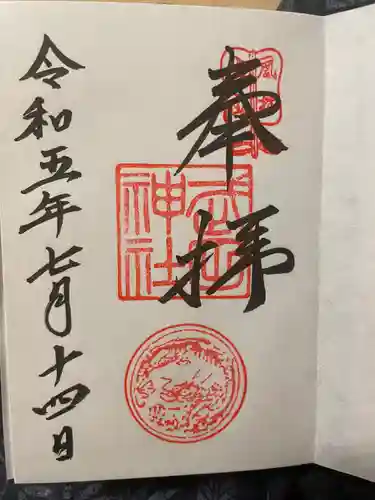 奉拝
神社
令和五年七月十四日